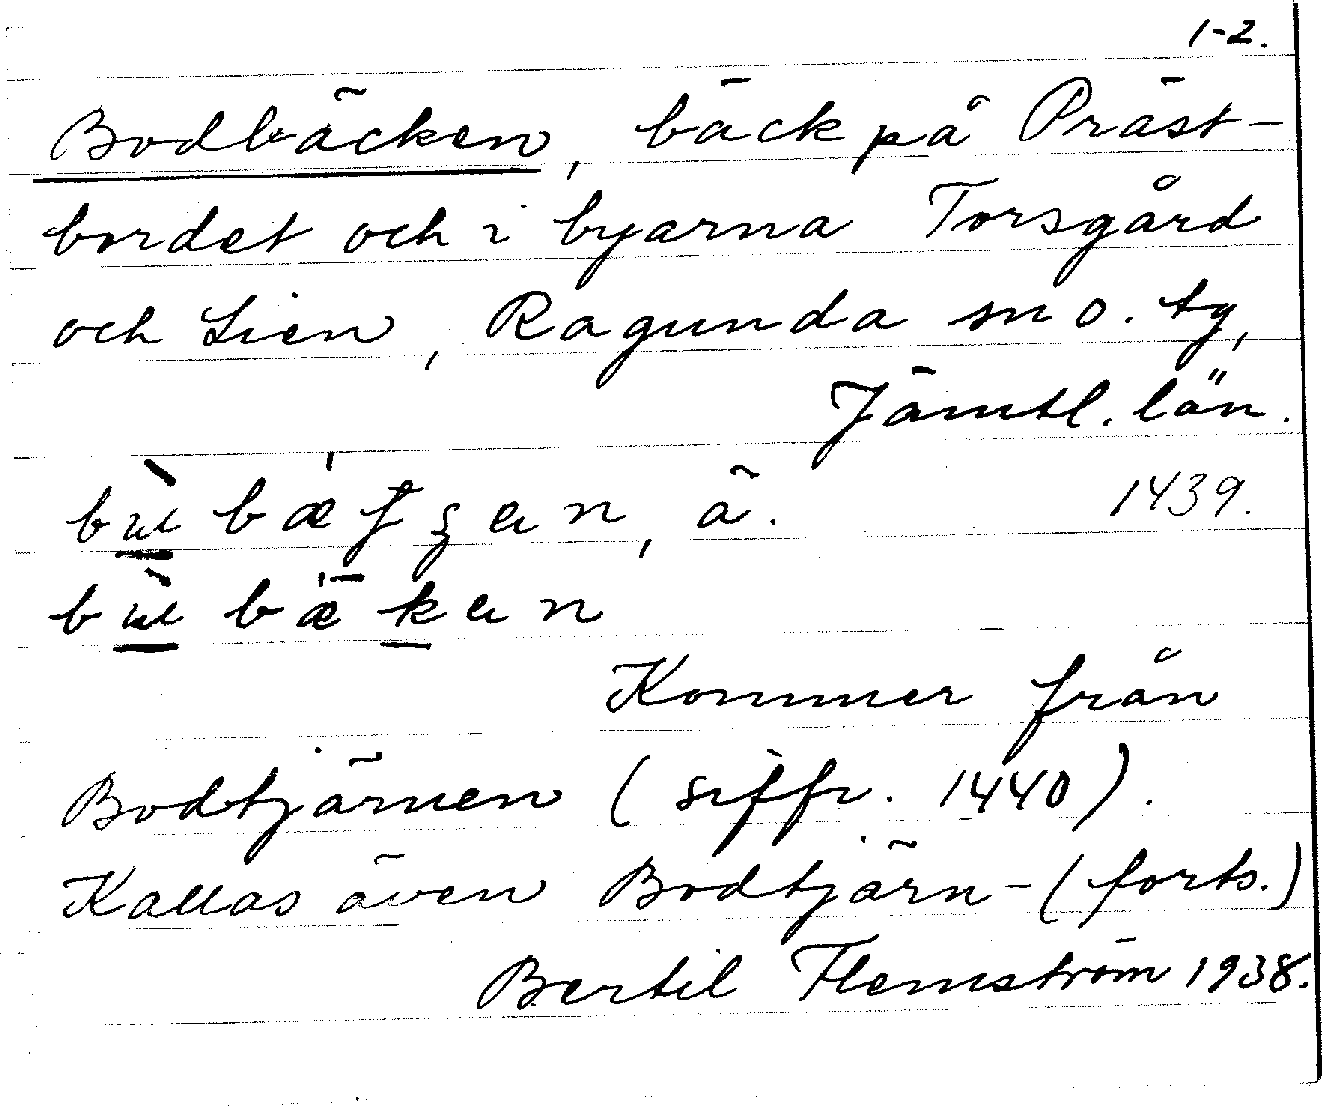 1-2.
Bodbäcken, bäck på Präst-
bordet och i byarna Torsgård
och Lien, Ragunda sn o. tg,
Jämtl. län.
1439.
Kommer från
Bodtjärnen (siffr. 1440).
Kallas även Bodtjärn- (forts.)
Bertil Flemström 1938.